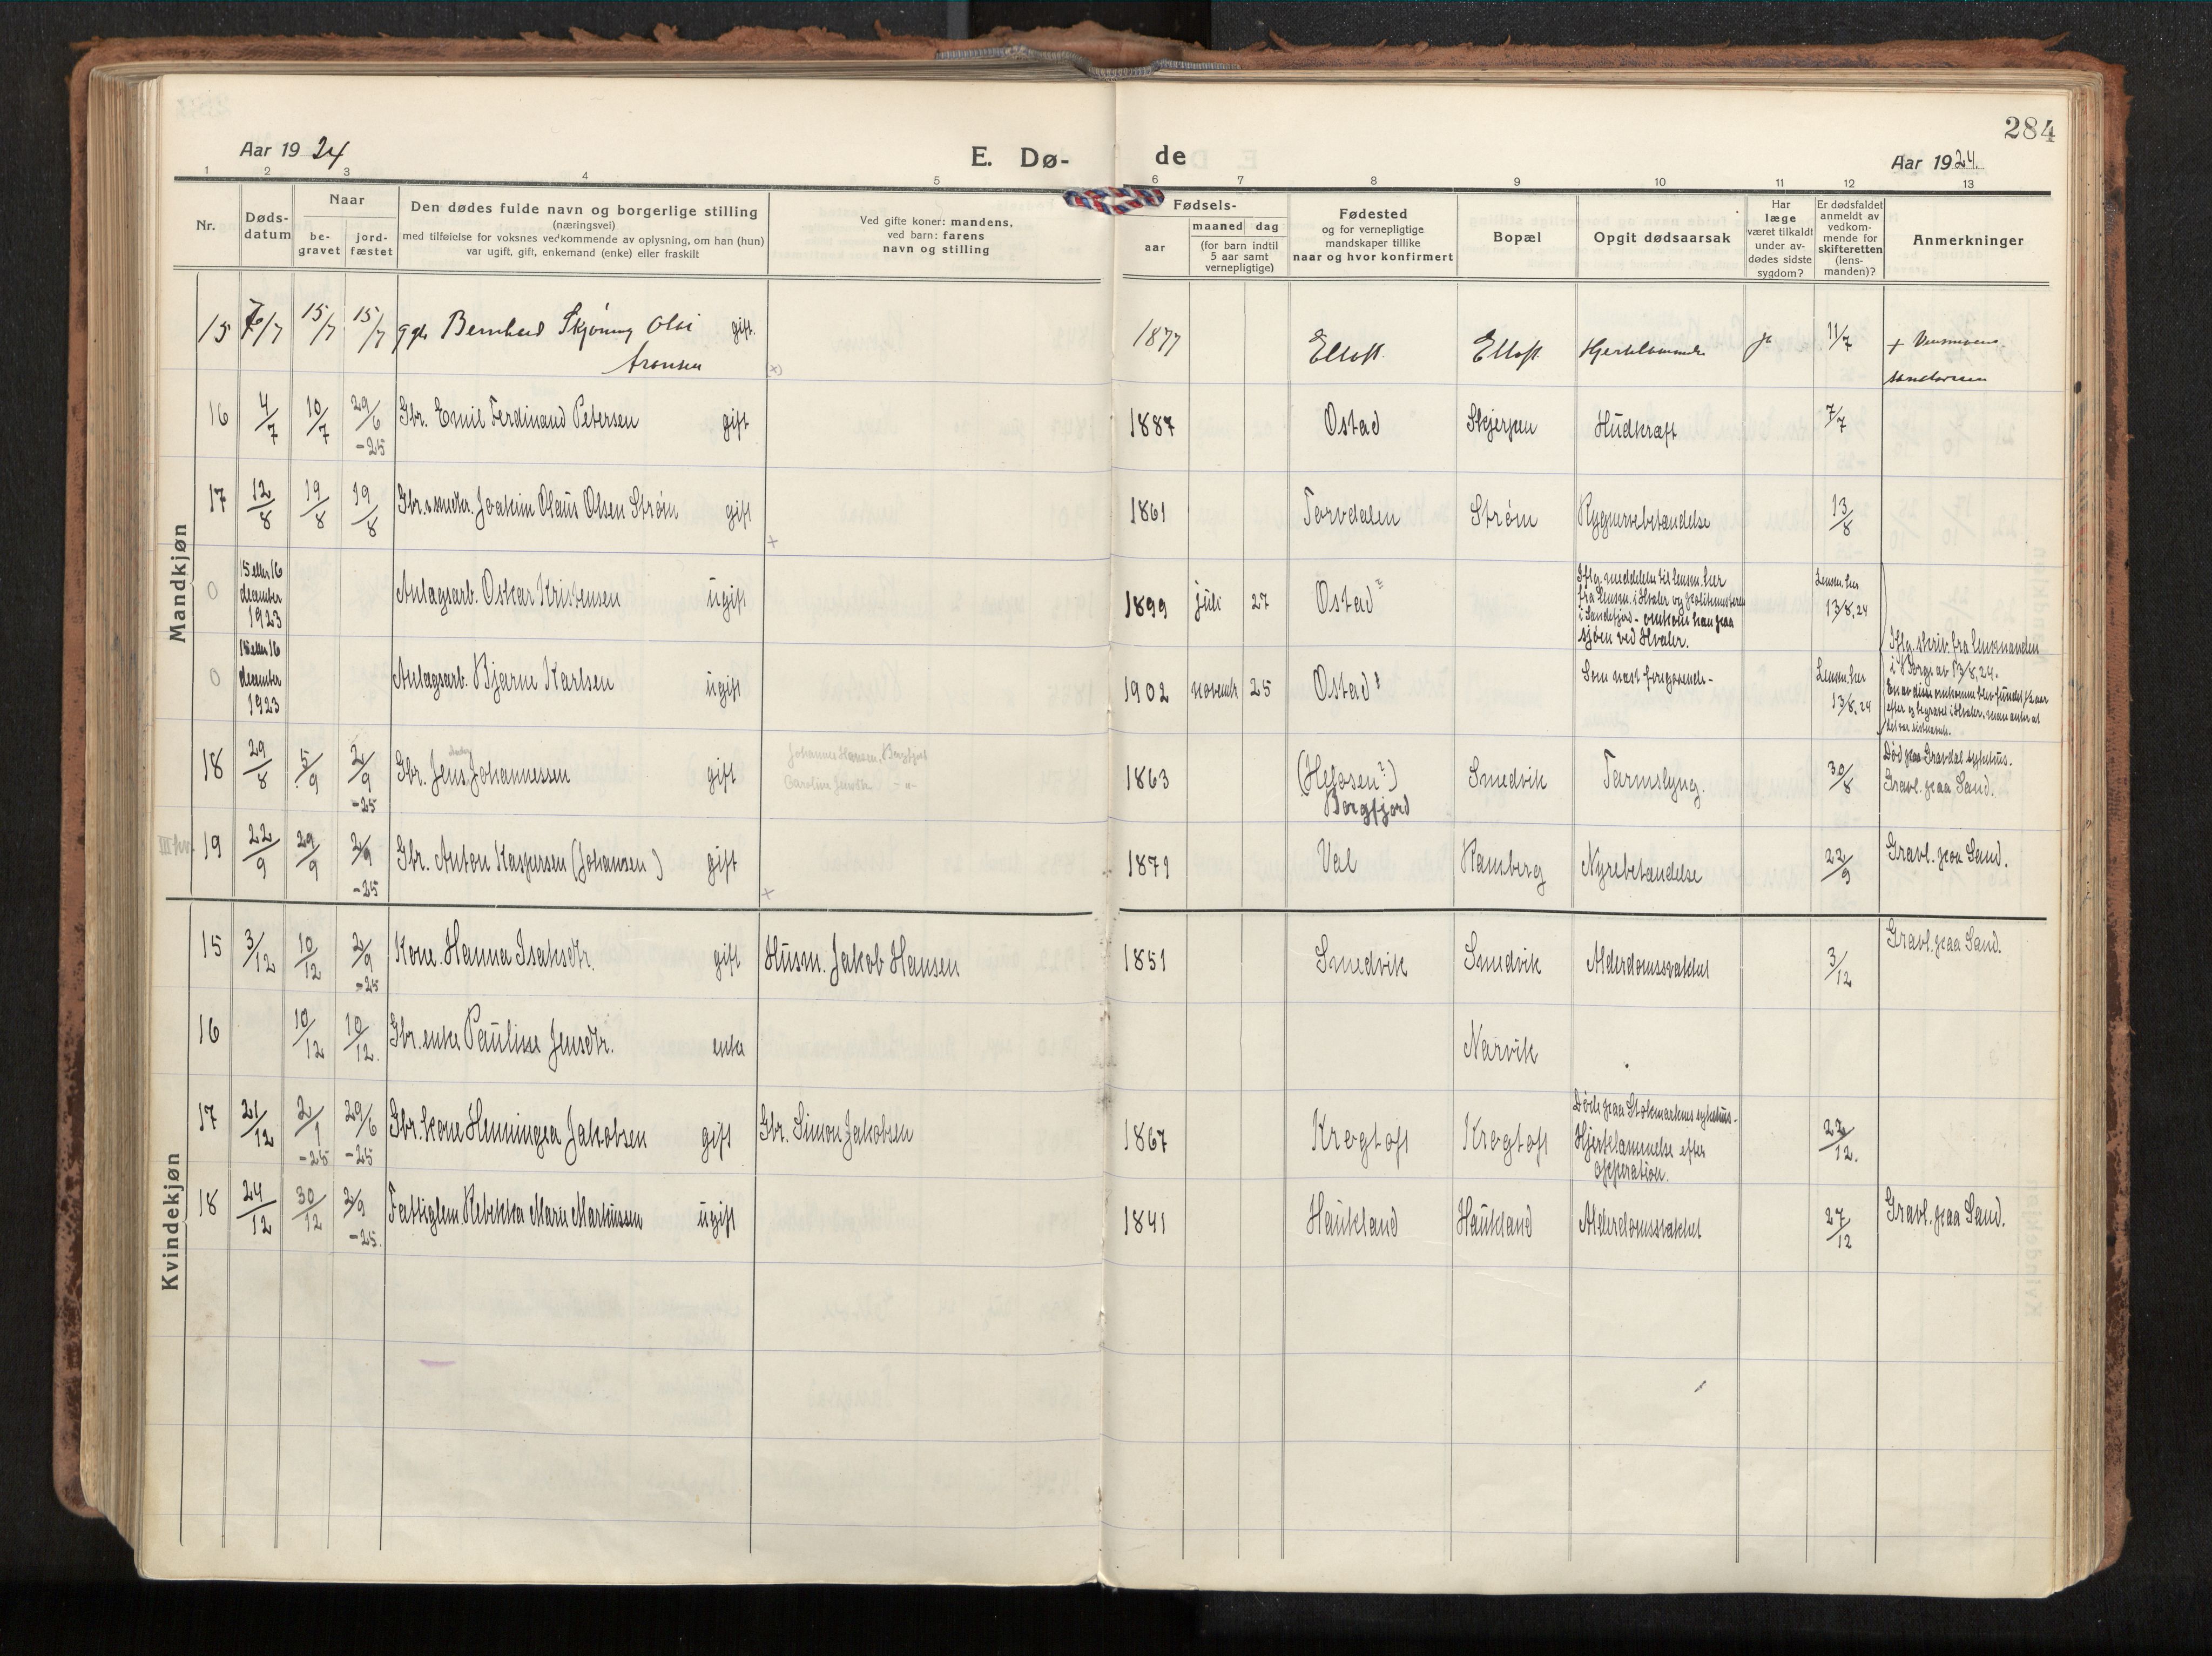 284
Aar 1924
E. Dø-
de
Aar 1924.
1 2 3 4 5 6 7 8 9 10 11 12 13
Nr.
Døds-
datum
Naar
be-
gravet
jord-
fæstet
Den dødes fulde navn og borgerlige stilling
(næringsvei)
med tilføielse for voksnes vedkommende av oplysning, om han (hun)
var ugift, gift, enkemand (enke) eller fraskilt
Ved gifte koner: mandens,
ved barn: farens
navn og stilling
Fødsels-
aar
maaned dag
(for barn indtil
5 aar samt
vernepligtige)
Fødested
og for vernepligtige
mandskaper tillike
naar og hvor konfirmert
Bopæl
Opgit dødsaarsak
Har
læge
været tilkaldt
under av-
dødes sidste
sygdom?
Er dødsfaldet
anmeldt av
vedkom-
mende for
skifteretten
(lens-
manden)?
Anmerkninger
Mandkjøn
15 7/7 15/7 15/7 Bernhard Skjøning Olai gift. 1877 Eltoft. Eltoft Hjertelammelse ja 11/7 +
Aronsen (x)
16 4/7 10/7 29/6 -25 Gbr. Emil Ferdinand Petersen gift 1887 Ostad Skjerpen Hudkræft 7/7
17 12/8 19/8 19/8 Gbr. smedm. Joakim Olaus Olsen Strøm gift x 1861 Torvdalen Strøm Rygmarvsbetændelse 13/8
0 15 eller 16 december 1923 Anlagsarb. Oskar Kristensen ugift 1899 juli 27 Ostad? Iflg. meddelelse til lensm. her
fra lensm. i Hvaler og politimesteren
i Sandefjord - omkom han paa
sjøen ved Hvaler.
Lensm. her 13/8. 24
0 15 eller 16 december 1923 Anlagsarb. Bjarne Karlsen ugift 1902 novembr 25 Ostad? Som næst foregaaende - Lensm. her 13/8. 24
Iflg. skriv. fra lensmanden
i Borge av 13/8. 24.
En av disse omkomne blev fundet 1/2 aar
efter og begravet i Hvaler, man antar at
18 29/8 5/9 2/9 -25 Gbr. Jens Johannessen gift Johannes Hansen, Borgfjord
1863 (Helosen?) Smedvik Tarmslyng. 30/8 Død paa Gravdal sykehus.
Borgfjord Gravl. paa Sand.
19 22/9 29/9 2/9 -25 Gbr. Anton Kaspersen (Johansen) gift x 1871 Val Ramberg Nyrebetændelse 22/9 Gravl. paa Sand.
Kvindekjøn
15 3/12 10/12 2/9 -25 Kone. Hanna Isaksdtr. gift Husm. Jakob Hansen 1851 Smedvik Smedvik Alderdomssvakhet 3/12 Gravl. paa Sand.
16 10/12 10/12. Gbr. enke Pauline Jensdtr. enke Narvik
17 21/12 2/1 -25 29/6 -25 Gbr. kone Henningea Jakobsen gift Gbr. Simon Jakobsen 1867 Krogtoft Krogtoft Døde paa Stokmarknes sykehus -
Hjertelammelse efter
opperation.
22/12.
18 24/12 30/12 2/9 -25. Fattiglem Rebekka Marie Markussen ugift 1841 Haukland Haukland Alderdomssvakhet 27/12 Gravl. paa Sand.